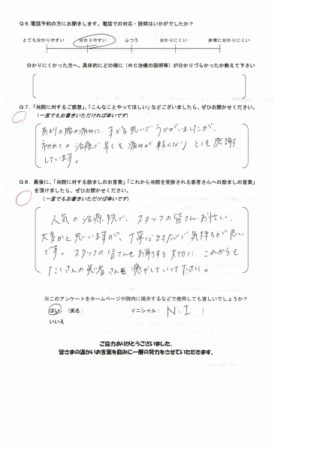 Q6.電話予約の方にお聞きします。電話での対応・説明はいかがでしたか?
とても分かりやすい 分かりやすい ふつう 分かりにくい 非常に分かりにくい
分かりにくかった方へ。具体的にどの様に(RC治療の説明等)が分かりづらかったか教えて下さい
Q7.「当院に対するご感想」、「こんなことやってほしい」などございましたら、ぜひお聞かせください。
(一言でもお書きいただければ幸いです)
あまりの腰の痛みに すがる思いで うかがいましたが、
初めての治療で 早くも 痛みが 軽くなり、とても感謝
しています。
Q8.最後に、「当院に対する励ましのお言葉」「これから当院を受診される患者さんへの励ましの言葉」
を頂けましたら、ぜひお聞かせください。
(一言でもお書きいただけば幸いです)
人気の治療院で、スタッフの皆さんお忙しく、
大変かと思いますが、丁寧な対応で気持ちが良い
です。スタッフの皆さんもお身体を大切に、これからも
たくさんの患者さんを癒やしていって下さい。
※このアンケートをホームページや院内に掲示するなどで使用しても宜しいでしょうか?
はい (実名: イニシャル: N.I )
いいえ
ご協力ありがとうございました。
皆さまの温かいお言葉を励みに一層の努力をさせていただきます。